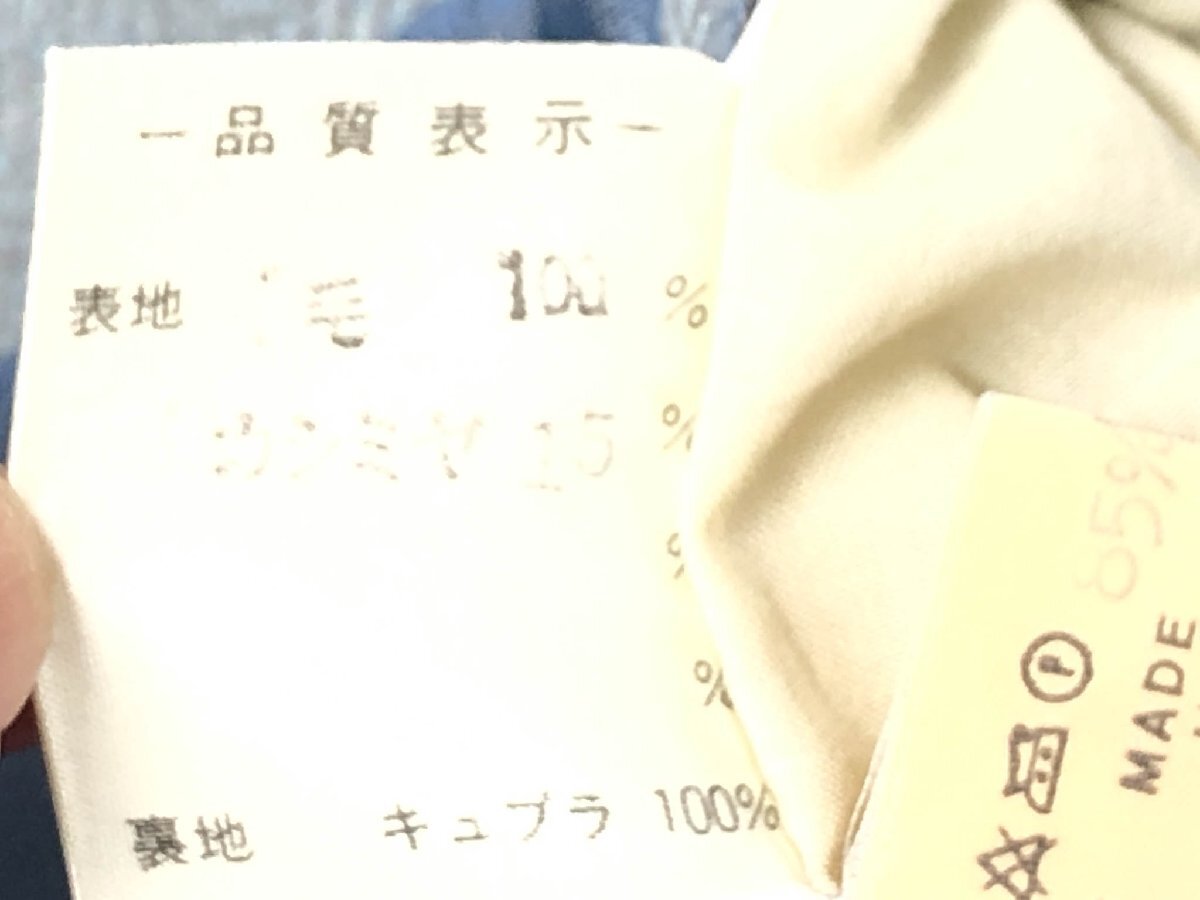 －品質表示－
表地 毛 100 %
カシミヤ 15 %
%
%
裏地 キュプラ 100%
85%
MADE